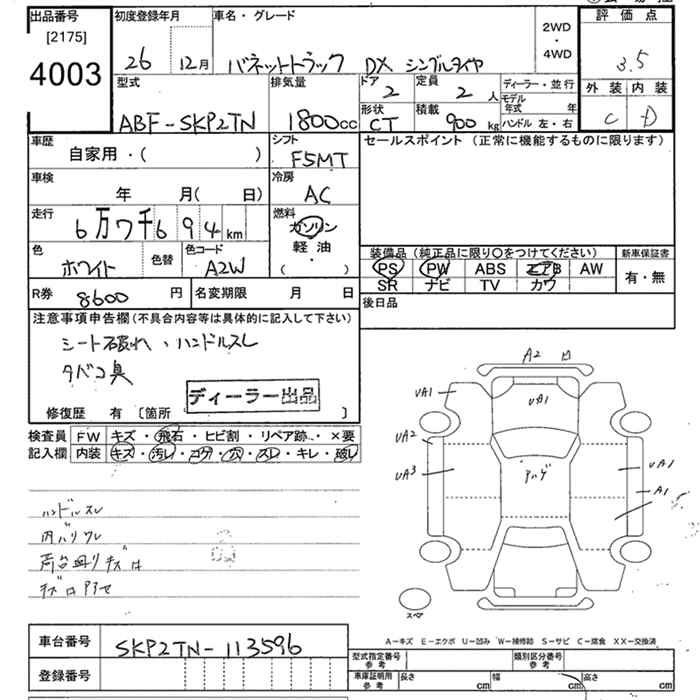 出品番号
[2175]
4003
初度登録年月
26 12月
車名・グレード
バネットトラック DX シングルタイヤ
2WD
・
4WD
評価点
3.5
外装 内装
C D
型式
ABF-SKP2TN
排気量
1800cc
ドア
2
定員
2人
ディーラー・並行
モデル年式 年
ハンドル 左・右
形状
CT
積載
900kg
車歴
自家用・( )
シフト
F5MT
セールスポイント (正常に機能するものに限ります)
車検
年 月( 日)
冷房
AC
走行
6万7千694km
燃料
ガソリン
軽油・
( )
色
ホワイト
色替
色コード
A2W
装備品(純正品に限り○をつけてください)
PS PW ABS エアB AW
SR ナビ TV カワ
新車保証書
有・無
R券 8600円
名変期限 月 日
後日品
注意事項申告欄(不具合内容等は具体的に記入して下さい)
シート破れ、ハンドルスレ
タバコ臭
ディーラー出品
修復歴 有 [箇所 ]
検査員記入欄
FW キズ・飛石・ヒビ割・リペア跡・×要
内装 キズ・汚レ・コゲ・穴・スレ・キレ・破レ
ハンドルスレ
内バリワレ
A2 ロ
UA1
UA1
UA2
UA3
UA1
A1
スペア
A-キズ E-エクボ U-凹み W-補修跡 S-サビ C-腐食 XX-交換済
車台番号
SKP2TN-113596
登録番号
型式指定番号
参考
類別区分番号
参考
車庫証明用
参考
長さ cm 幅 cm 高さ cm